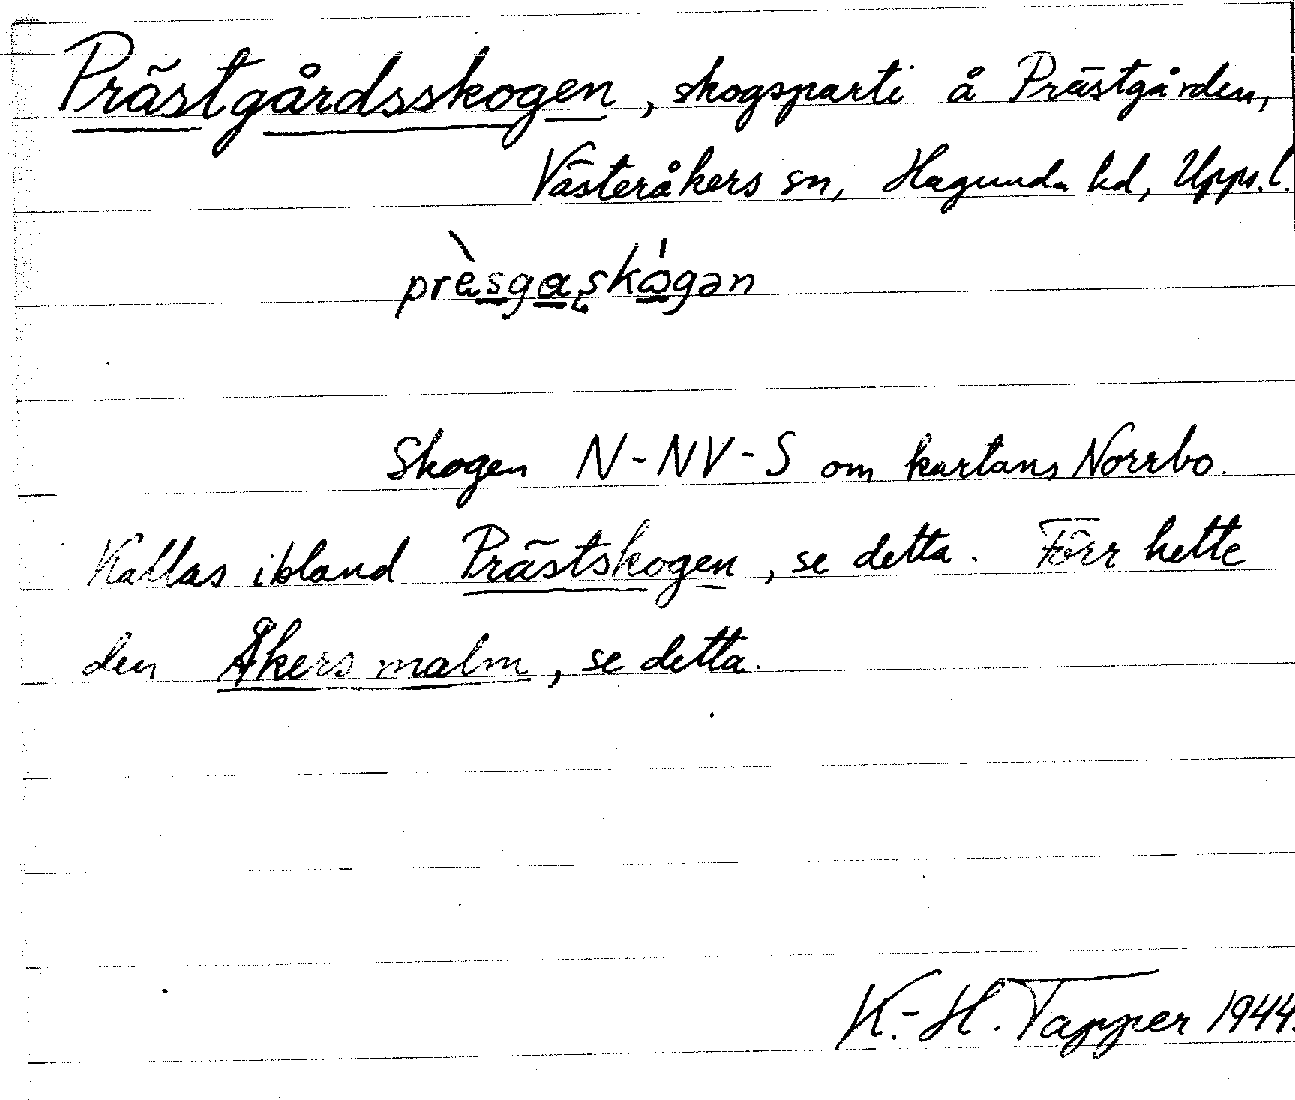 Prästgårdsskogen, skogsparti å Prästgården,
Västeråkers sn, Hagunda hd, Upps. l.
prèsgaskógən
Skogen N-NV-S om kartans Norrbo.
Kallas ibland Prästskogen, se detta. Förr hette
den Åkers malm, se detta.
K.-H. Tapper 1944.